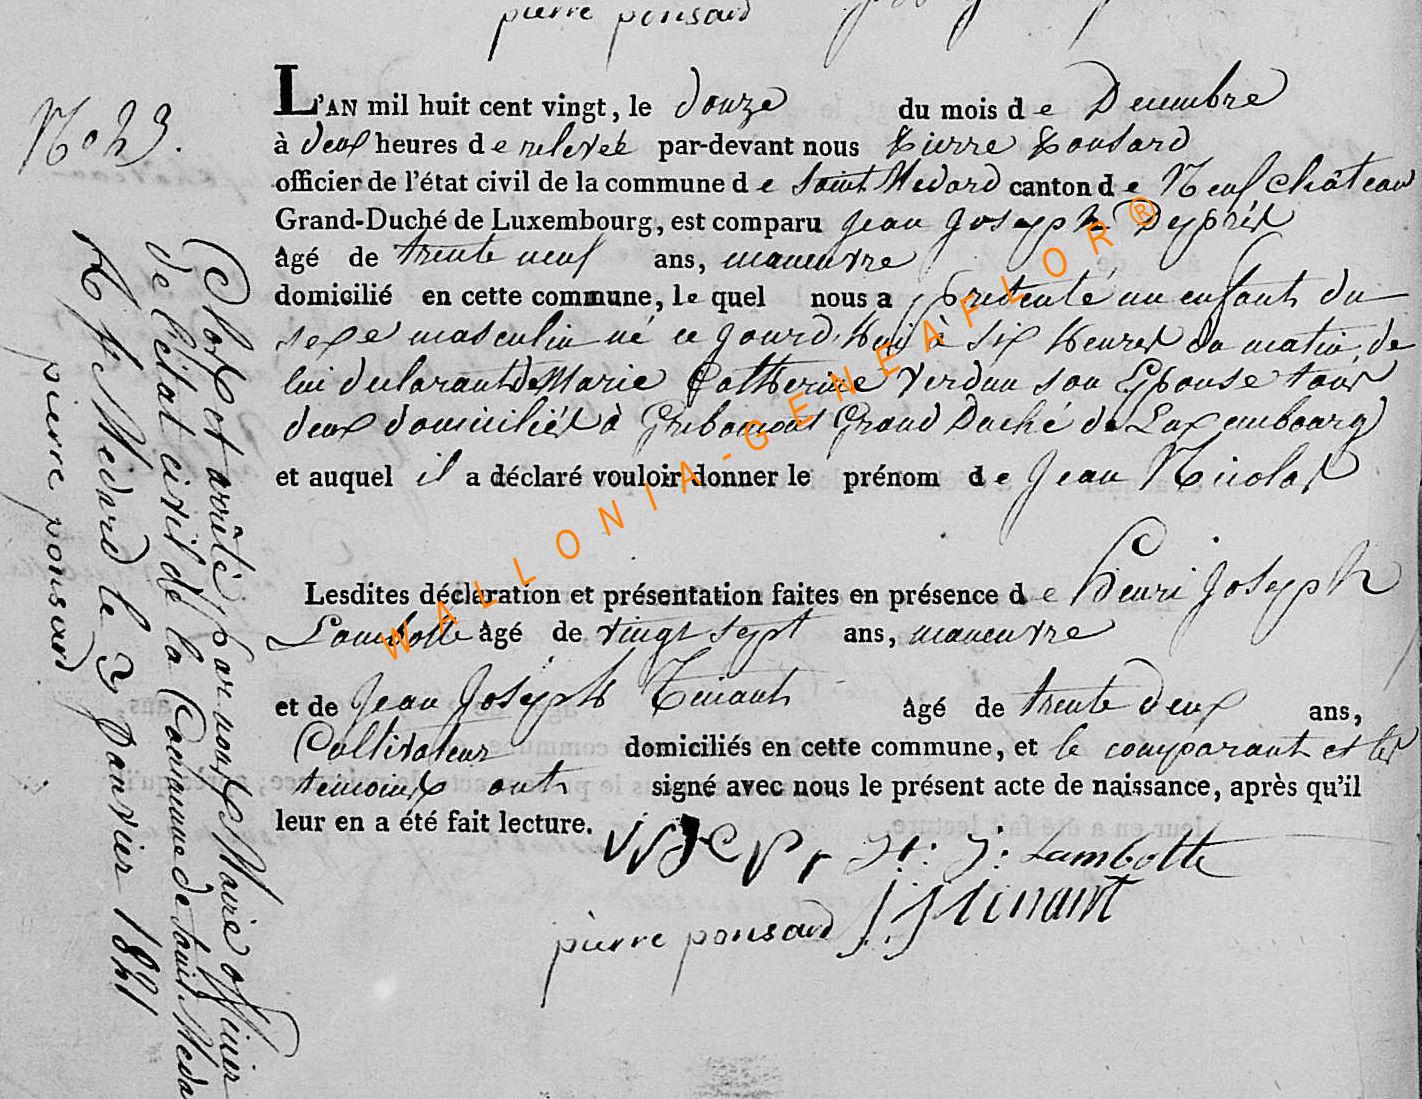 pierre ponsard
No 23.
L'AN mil huit cent vingt, le douze du mois de Decembre
à deux heures de relevée par-devant nous Pierre Ponsard
officier de l'état civil de la commune de Saint Medard canton de Neufchâteau
Grand-Duché de Luxembourg, est comparu Jean Joseph Depréx
âgé de trente neuf ans, maneuvre
domicilié en cette commune, le quel nous a présenté un enfant du
sexe masculin né ce jourd'huij à six heures du matin, de
lui declarant & de Marie Catherine Verdun son Epouse tous
deux domiciliés à Gribomont Grand Duché de Luxembourg
et auquel il a déclaré vouloir donner le prénom de Jean Nicolas
Lesdites déclaration et présentation faites en présence de Henri Joseph
Lambotte âgé de vingt sept ans, maneuvre
et de Jean Joseph Tinant âgé de trente deux ans,
Cultivateur domiciliés en cette commune, et le comparant et les
temoins ont signé avec nous le présent acte de naissance, après qu'il
leur en a été fait lecture.
H: J: Lambotte
pierre ponsard J. J. tinant
Clos et arrêté par nous Maire officier
de l'état civil de la Commune de Saint Meda
St Medard le 2 Janvier 1821
pierre ponsard
WALLONIA-GENEAFLOR®